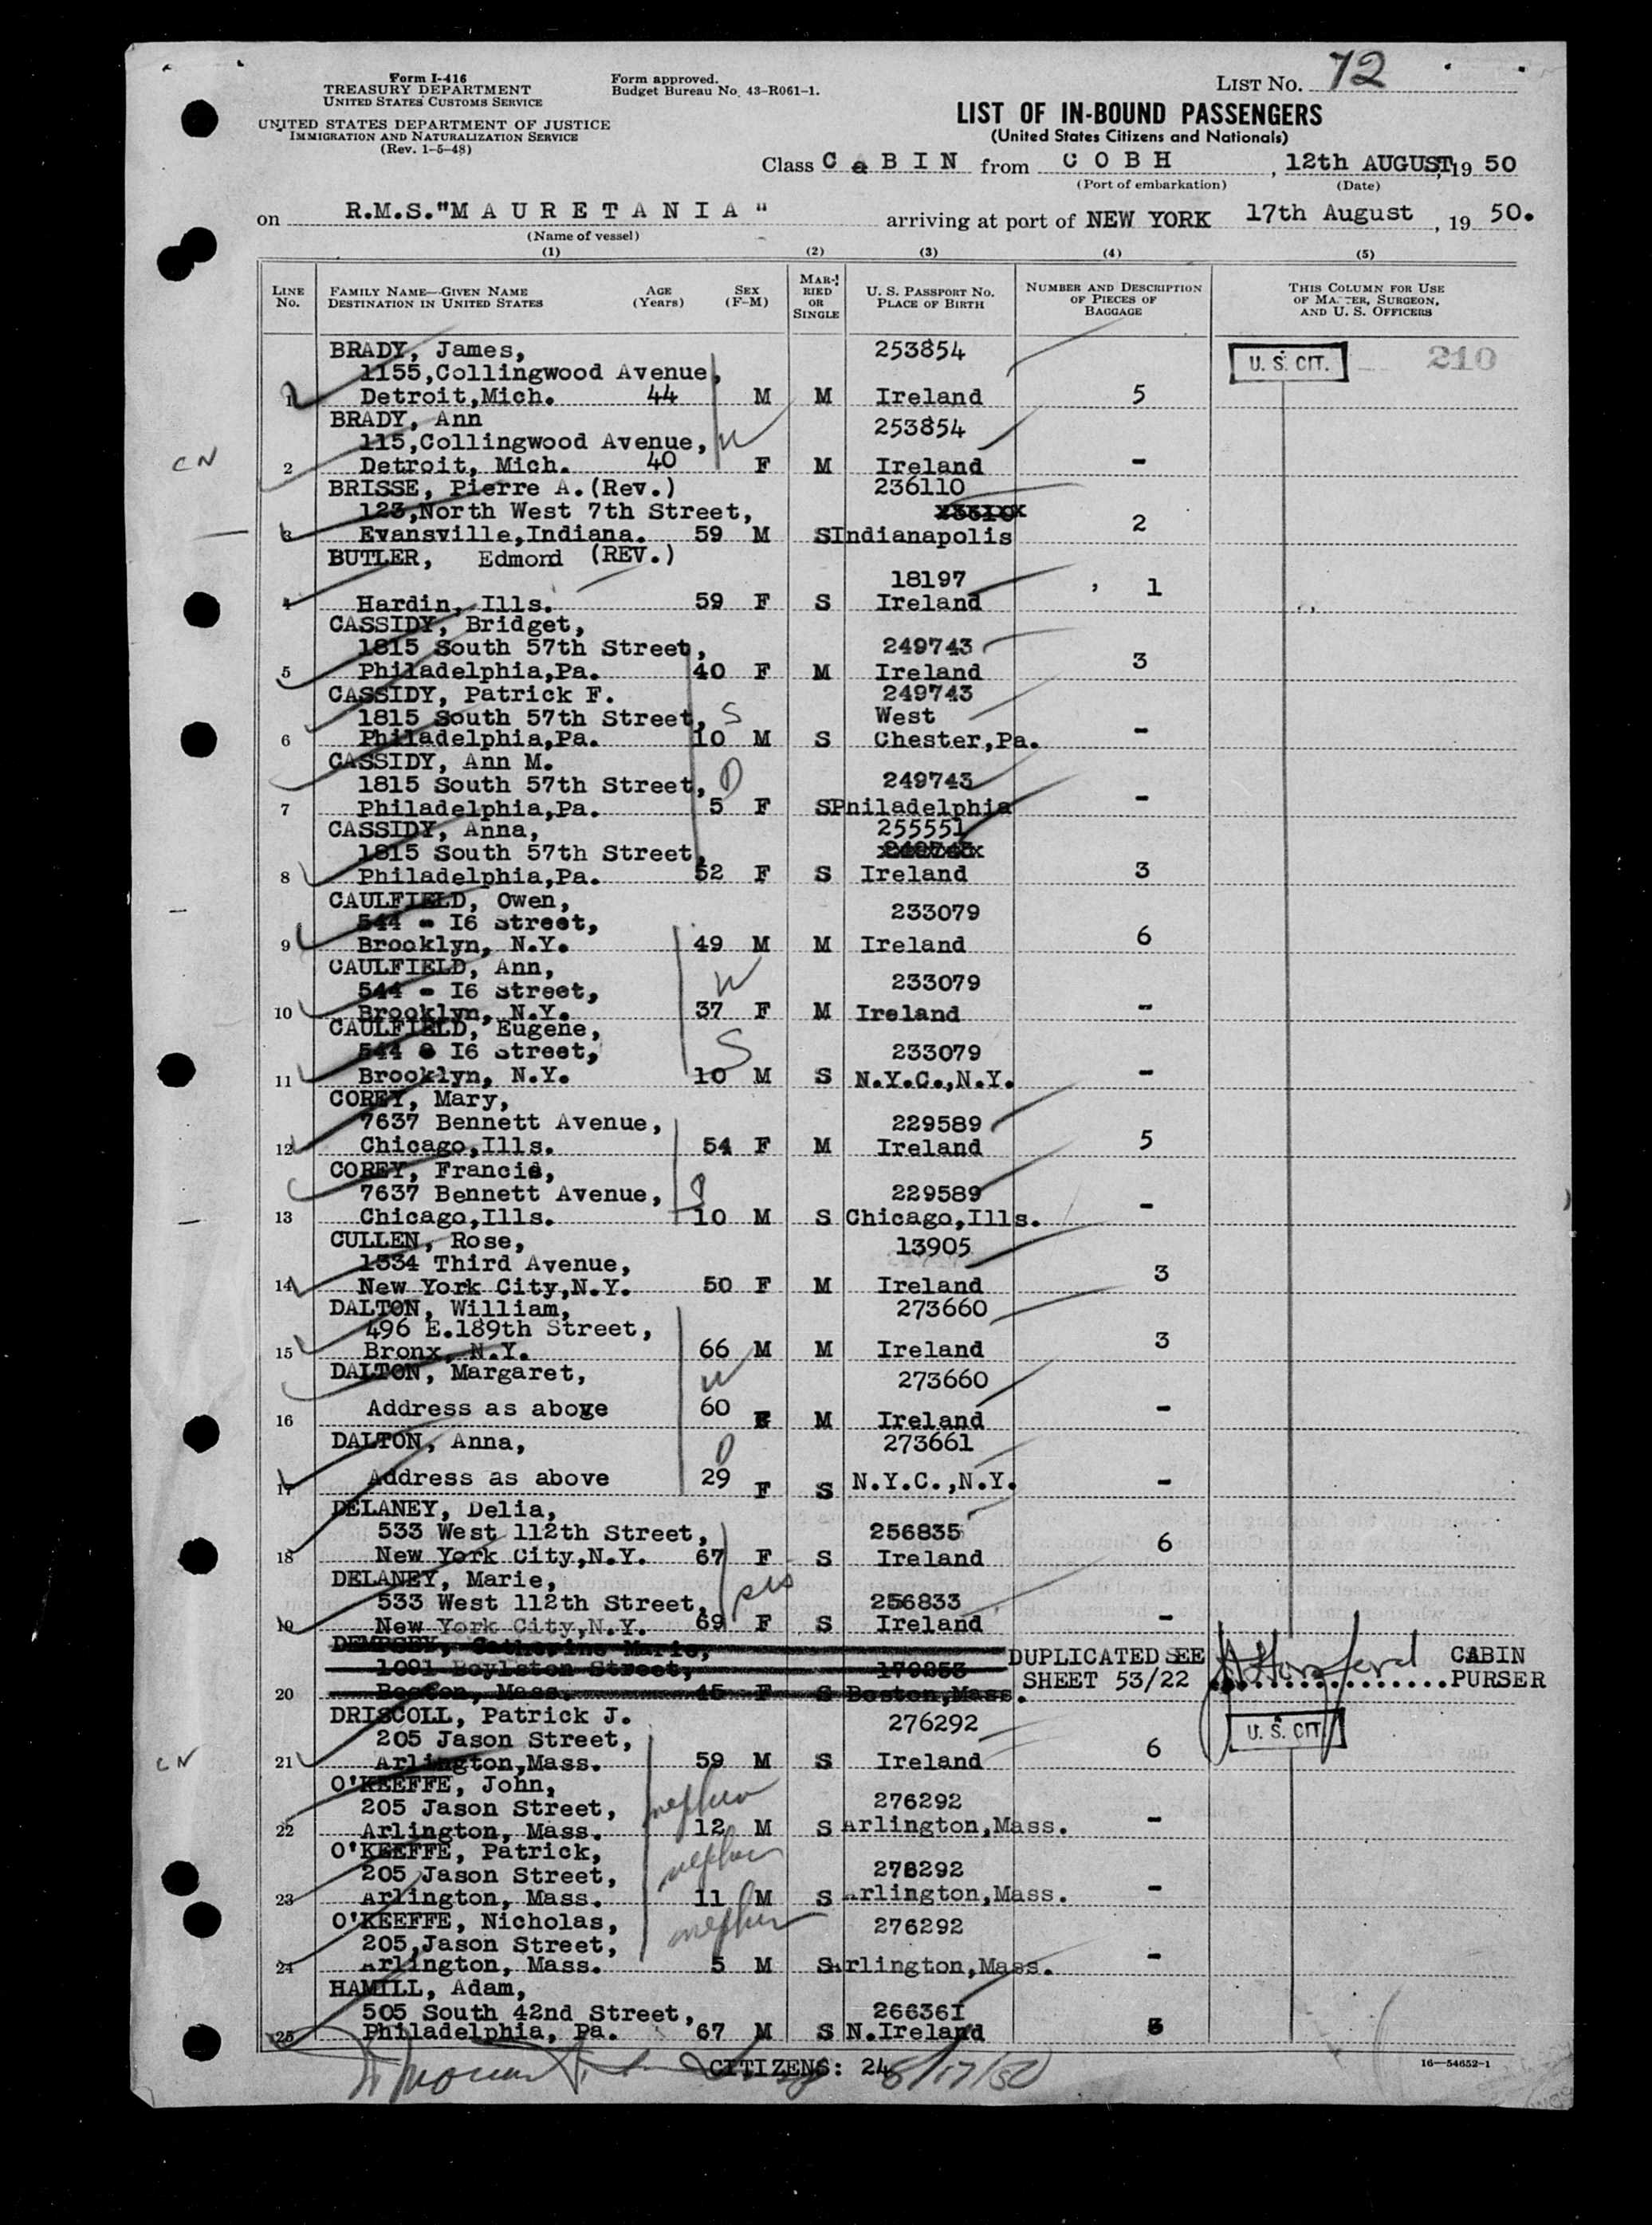 Form I-416
TREASURY DEPARTMENT
UNITED STATES CUSTOMS SERVICE
UNITED STATES DEPARTMENT OF JUSTICE
IMMIGRATION AND NATURALIZATION SERVICE
(Rev. 1-5-48)
Form approved.
Budget Bureau No. 43-R061-1.
LIST No. 72
LIST OF IN-BOUND PASSENGERS
(United States Citizens and Nationals)
Class C a B I N from C O B H , 12th AUGUST, 19 50
(Port of embarkation) (Date)
on R.M.S."M A U R E T A N I A" arriving at port of NEW YORK 17th August , 19 50.
(Name of vessel)
(1) (2) (3) (4) (5)
LINE No. FAMILY NAME—GIVEN NAME DESTINATION IN UNITED STATES AGE (Years) SEX (F-M) MARRIED OR SINGLE U. S. PASSPORT NO. PLACE OF BIRTH NUMBER AND DESCRIPTION OF PIECES OF BAGGAGE THIS COLUMN FOR USE OF MASTER, SURGEON, AND U. S. OFFICERS
BRADY, James, 253854 U. S. CIT. 210
1155,Collingwood Avenue,
1 Detroit,Mich. 44 M M Ireland 5
BRADY, Ann 253854
115,Collingwood Avenue, W
CN 2 Detroit, Mich. 40 F M Ireland -
BRISSE, Pierre A.(Rev.) 236110
123,North West 7th Street,
3 Evansville,Indiana. 59 M S Indianapolis 2
BUTLER, Edmond (REV.)
18197
4 Hardin, Ills. 59 F S Ireland 1
CASSIDY, Bridget,
1815 South 57th Street, 249743
5 Philadelphia,Pa. 40 F M Ireland 3
CASSIDY, Patrick F. 249743
1815 South 57th Street, S West
6 Philadelphia,Pa. 10 M S Chester,Pa. -
CASSIDY, Ann M.
1815 South 57th Street, D 249743
7 Philadelphia,Pa. 5 F S Philadelphia -
CASSIDY, Anna, 255551
1815 South 57th Street,
8 Philadelphia,Pa. 52 F S Ireland 3
CAULFIELD, Owen,
544 - I6 Street, 233079
9 Brooklyn, N.Y. 49 M M Ireland 6
CAULFIELD, Ann,
544 - I6 Street, W 233079
10 Brooklyn, N.Y. 37 F M Ireland -
CAULFIELD, Eugene,
544 I6 Street, S 233079
11 Brooklyn, N.Y. 10 M S N.Y.C.,N.Y. -
COREY, Mary,
7637 Bennett Avenue, 229589
12 Chicago,Ills. 54 F M Ireland 5
COREY, Francis,
7637 Bennett Avenue, 229589
13 Chicago,Ills. 10 M S Chicago,Ills. -
CULLEN, Rose, 13905
1534 Third Avenue,
14 New York City,N.Y. 50 F M Ireland 3
DALTON, William, 273660
496 E.189th Street,
15 Bronx, N.Y. 66 M M Ireland 3
DALTON, Margaret, W 273660
16 Address as above 60 F M Ireland -
DALTON, Anna, D 273661
17 Address as above 29 F S N.Y.C.,N.Y. -
DELANEY, Delia,
533 West 112th Street, 256835
18 New York City,N.Y. 67 F S Ireland 6
DELANEY, Marie, sis
533 West 112th Street, 256833
19 New York City,N.Y. 69 F S Ireland -
DEMPSEY, Catherine Marie, DUPLICATED SEE CABIN
1091 Boylston Street, 179253 SHEET 53/22 PURSER
20 Boston, Mass. 45 F S Boston,Mass.
DRISCOLL, Patrick J. 276292 U. S. CIT.
205 Jason Street,
CN 21 Arlington,Mass. 59 M S Ireland 6
O'KEEFFE, John, nephew
205 Jason Street, 276292
22 Arlington, Mass. 12 M S Arlington,Mass. -
O'KEEFFE, Patrick, nephew
205 Jason Street, 276292
23 Arlington, Mass. 11 M S Arlington,Mass. -
O'KEEFFE, Nicholas, nephew 276292
205,Jason Street,
24 Arlington, Mass. 5 M S Arlington,Mass. -
HAMILL, Adam,
505 South 42nd Street, 266361
25 Philadelphia, Pa. 67 M S N.Ireland
CITIZENS: 24 8/17/50
16—54652-1